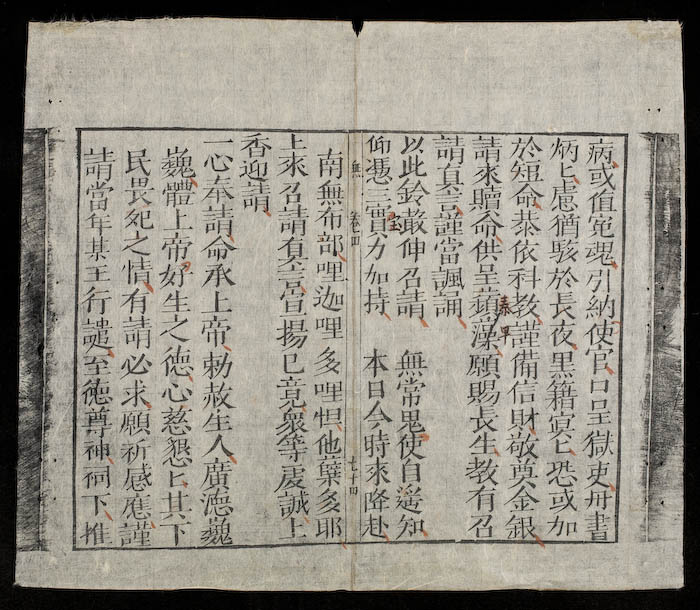 病或值冤魂引納使官口呈獄吏冊書
炳匕慮猶骇於長夜黑籍冥匕恐或加
於短命恭依科教謹備信財敬奠金銀
請來贖命供呈蘋藻願賜長生教有召
秦早
請真言謹當諷誦
以此鈴敲伸召請 無常鬼使自遙知
仰憑三寶力加持 本日今時來降赴
宝
無 卷四 七十四
南無布部哩迦哩多哩怛他蘖多耶
上來召請真言宣揚已竟衆等虔誠上
香迎請
一心奉請命承上帝勅赦生人廣德巍
巍體上帝好生之德心慈懇匕其下
民畏死之情有請必求願祈感應謹
請當年某王行譴至德尊神祠下推